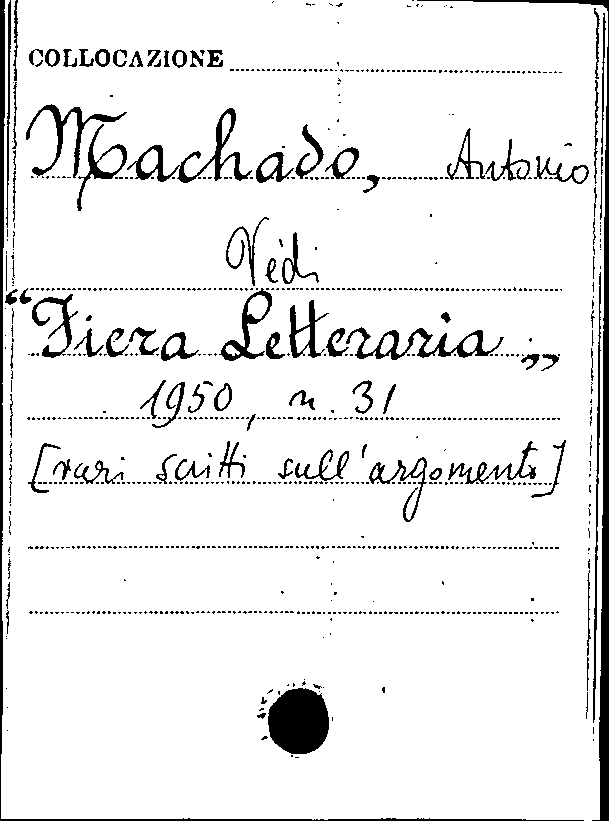 COLLOCAZIONE
Machado, Antonio
Vedi
“Fiera Letteraria „
1950, n. 31
[vari scritti sull'argomento]